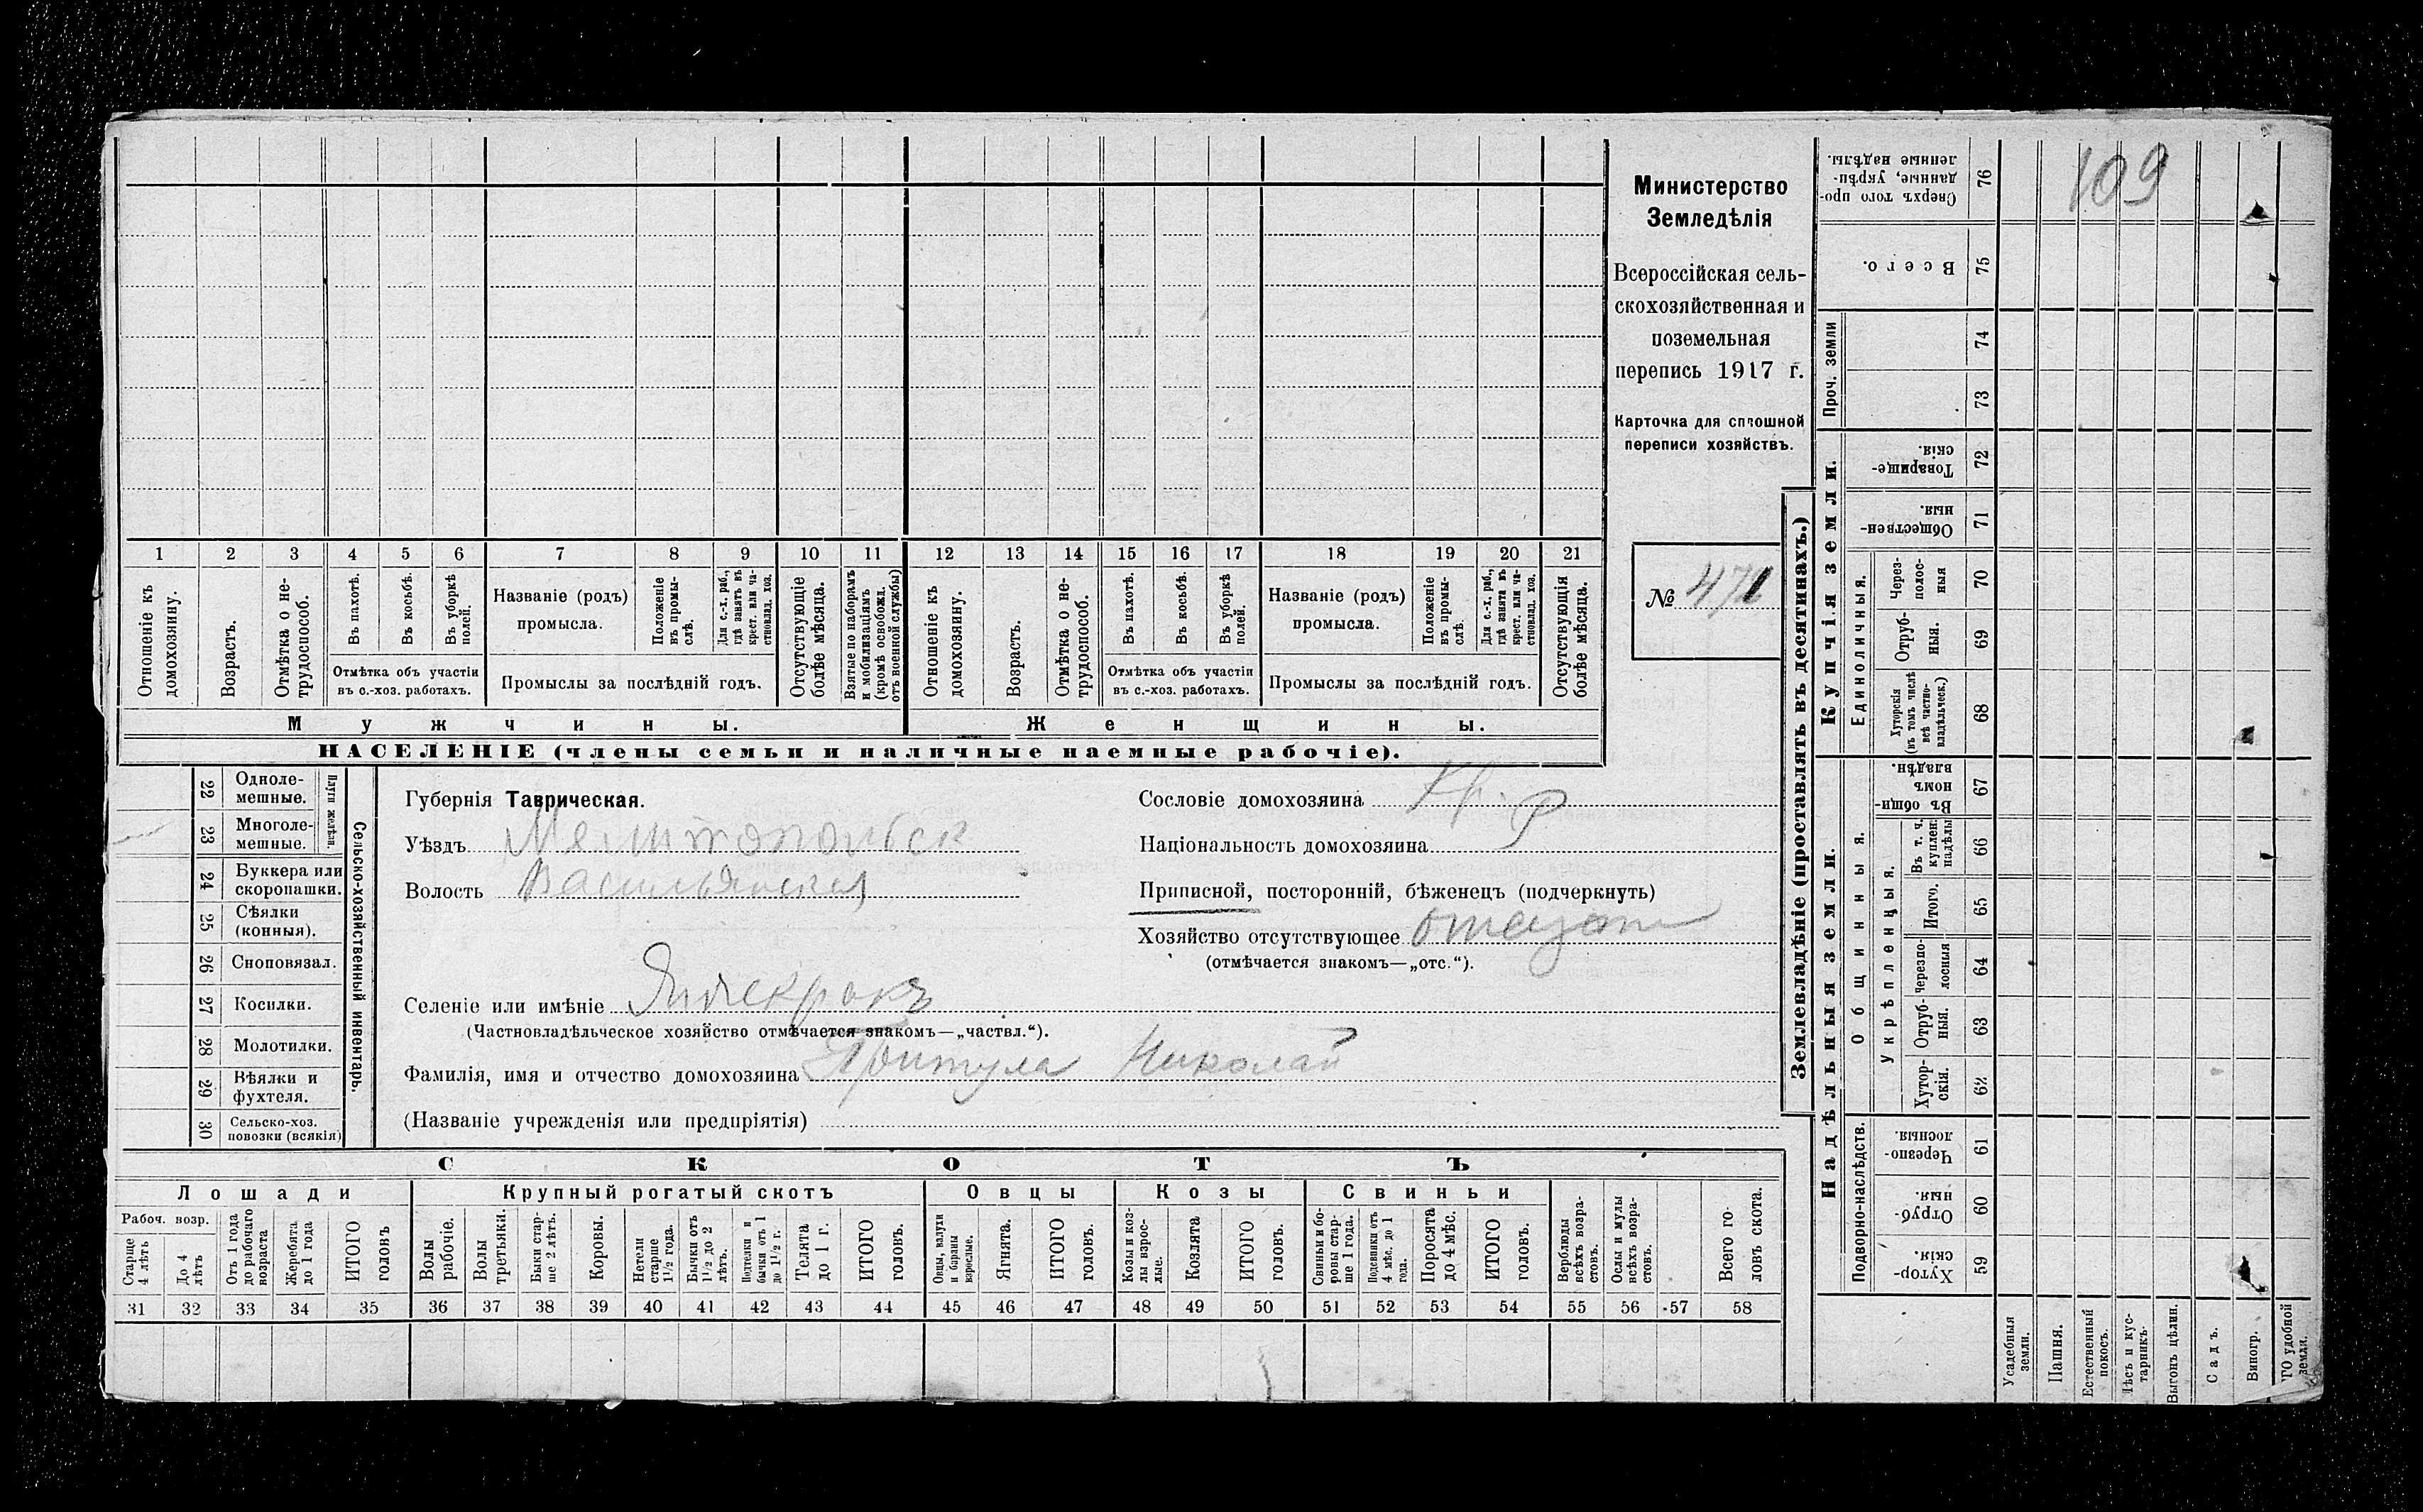 Министерство
Земледѣлія
Всероссійская сель-
скохозяйственная и
поземельная
перепись 1917 г.
Карточка для сплошной
переписи хозяйствъ.
№ 471
109
1 2 3 4 5 6 7 8 9 10 11 12 13 14 15 16 17 18 19 20 21
Отношеніе къ домохозяину.
Возрастъ.
Отмѣтка о не-трудоспособ.
Въ пахотѣ.
Въ косьбѣ.
Въ уборкѣ полей.
Отмѣтка объ участіи
въ с.-хоз. работахъ.
Названіе (родъ)
промысла.
Положеніе въ промы-слѣ.
Для с.-х. раб., гдѣ занятъ въ крест. или ча-стновлад. хоз.
Промыслы за послѣдній годъ.
Отсутствующіе болѣе мѣсяца.
Взятые по наборамъ и мобилизаціямъ (кромѣ освобожд. отъ военной службы)
Отношеніе къ домохозяину.
Возрастъ.
Отмѣтка о не-трудоспособ.
Въ пахотѣ.
Въ косьбѣ.
Въ уборкѣ полей.
Отмѣтка объ участіи
въ с.-хоз. работахъ.
Названіе (родъ)
промысла.
Положеніе въ промы-слѣ.
Для с.-х. раб., гдѣ занята въ крест. или ча-стновлад. хоз.
Промыслы за послѣдній годъ.
Отсутствующія болѣе мѣсяца.
Мужчины.
Женщины.
НАСЕЛЕНІЕ (члены семьи и наличные наемные рабочіе).
22 Одноле-мешные.
23 Многоле-мешные.
Плуги желѣзн.
24 Буккера или скоропашки.
25 Сѣялки (конныя).
26 Сноповязал.
27 Косилки.
28 Молотилки.
29 Вѣялки и фухтеля.
30 Сельско-хоз. повозки (всякія)
Сельско-хозяйственный инвентарь.
Губернія Таврическая.
Уѣздъ Мелитопольск
Волость Васильевская
Селеніе или имѣніе Янчекракъ
(Частновладѣльческое хозяйство отмѣчается знакомъ—„частвл.“).
Фамилія, имя и отчество домохозяина Притула Николай
(Названіе учрежденія или предпріятія)
Сословіе домохозяина Кр.
Національность домохозяина Р
Приписной, посторонній, бѣженецъ (подчеркнуть)
Хозяйство отсутствующее
(отмѣчается знакомъ—„отс.“).
СКОТЪ
Лошади
Крупный рогатый скотъ
Овцы
Козы
Свиньи
Рабоч. возр.
Старше 4 лѣтъ
До 4 лѣтъ
Отъ 1 года до рабочаго возраста
Жеребята до 1 года
ИТОГО головъ
Волы рабочіе.
Волы третьяки.
Быки стар-ше 2 лѣтъ.
Коровы.
Нетели старше 1½ года.
Бычки отъ 1½ до 2 лѣтъ.
Подтелки и бычки отъ 1 до 1½ г.
Телята до 1 г.
ИТОГО головъ.
Овцы, валухи и бараны взрослые.
Ягнята.
ИТОГО головъ.
Козы и коз-лы взрос-лые.
Козлята
ИТОГО головъ.
Свиньи и бо-ровы стар-ше 1 года.
Подсвинки отъ 4 мѣс. до 1 года.
Поросята до 4 мѣс.
ИТОГО головъ.
Верблюды всѣхъ возра-стовъ.
Ослы и мулы всѣхъ возра-стовъ.
Всего го-ловъ скота.
31 32 33 34 35 36 37 38 39 40 41 42 43 44 45 46 47 48 49 50 51 52 53 54 55 56 57 58
Землевладѣніе (проставлять въ десятинахъ.)
Надѣльныя земли.
Купчія земли.
Проч. земли
Подворно-наслѣдств.
Общинныя.
Укрѣпленныя.
Единоличныя.
76 Сверхъ того про-данные, укрѣп-ленные надѣлы.
75 Всего.
74
73
72 Товарище-скія.
71 Обществен-ныя.
70 Через-полос-ныя
69 Отруб-ныя.
68 Хуторскія (въ томъ числѣ всѣ частно-владѣльческ.)
67 Въ общи-номъ владѣн.
66 Въ т. ч. куплен. надѣлы
65 Итого.
64 Черезпо-лосныя
63 Отруб-ныя.
62 Хутор-скія.
61 Черезпо-лосныя.
60 Отруб-ныя.
59 Хутор-скія.
Усадебныя земли.
Пашня.
Естественный покосъ.
Лѣсъ и кус-тарникъ.
Выгонъ цѣлин.
Садъ.
Виногр.
ГО удобной земли.